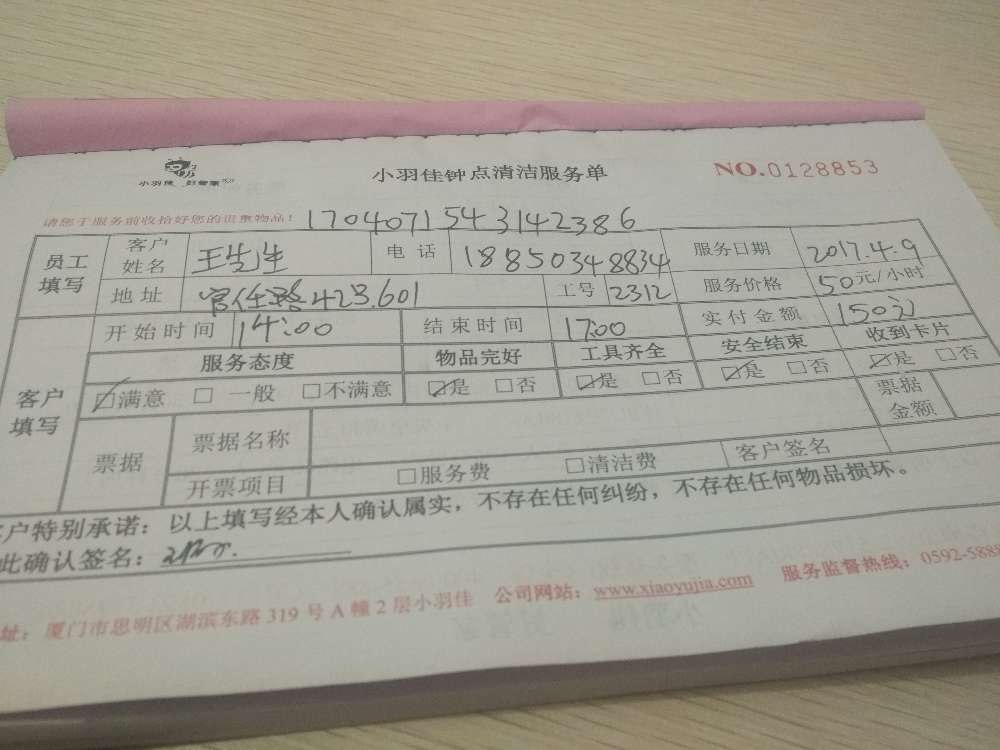 小羽佳 好管家
小羽佳钟点清洁服务单
NO.0128853
请您于服务前收拾好您的贵重物品！ 1704071543142386
员工填写 客户姓名 王先生 电话 18850348834 服务日期 2017.4.9
地址 官任路423.601 工号 2312 服务价格 50元/小时
客户填写 开始时间 14:00 结束时间 17:00 实付金额 150元
服务态度 物品完好 工具齐全 安全结束 收到卡片
☑满意 □一般 □不满意 ☑是 □否 ☑是 □否 ☑是 □否 ☑是 □否
票据 票据名称 票据金额
开票项目 □服务费 □清洁费 客户签名
客户特别承诺：以上填写经本人确认属实，不存在任何纠纷，不存在任何物品损坏。
此确认签名：
址：厦门市思明区湖滨东路319号A幢2层小羽佳 公司网站：www.xiaoyujia.com 服务监督热线：0592-5888